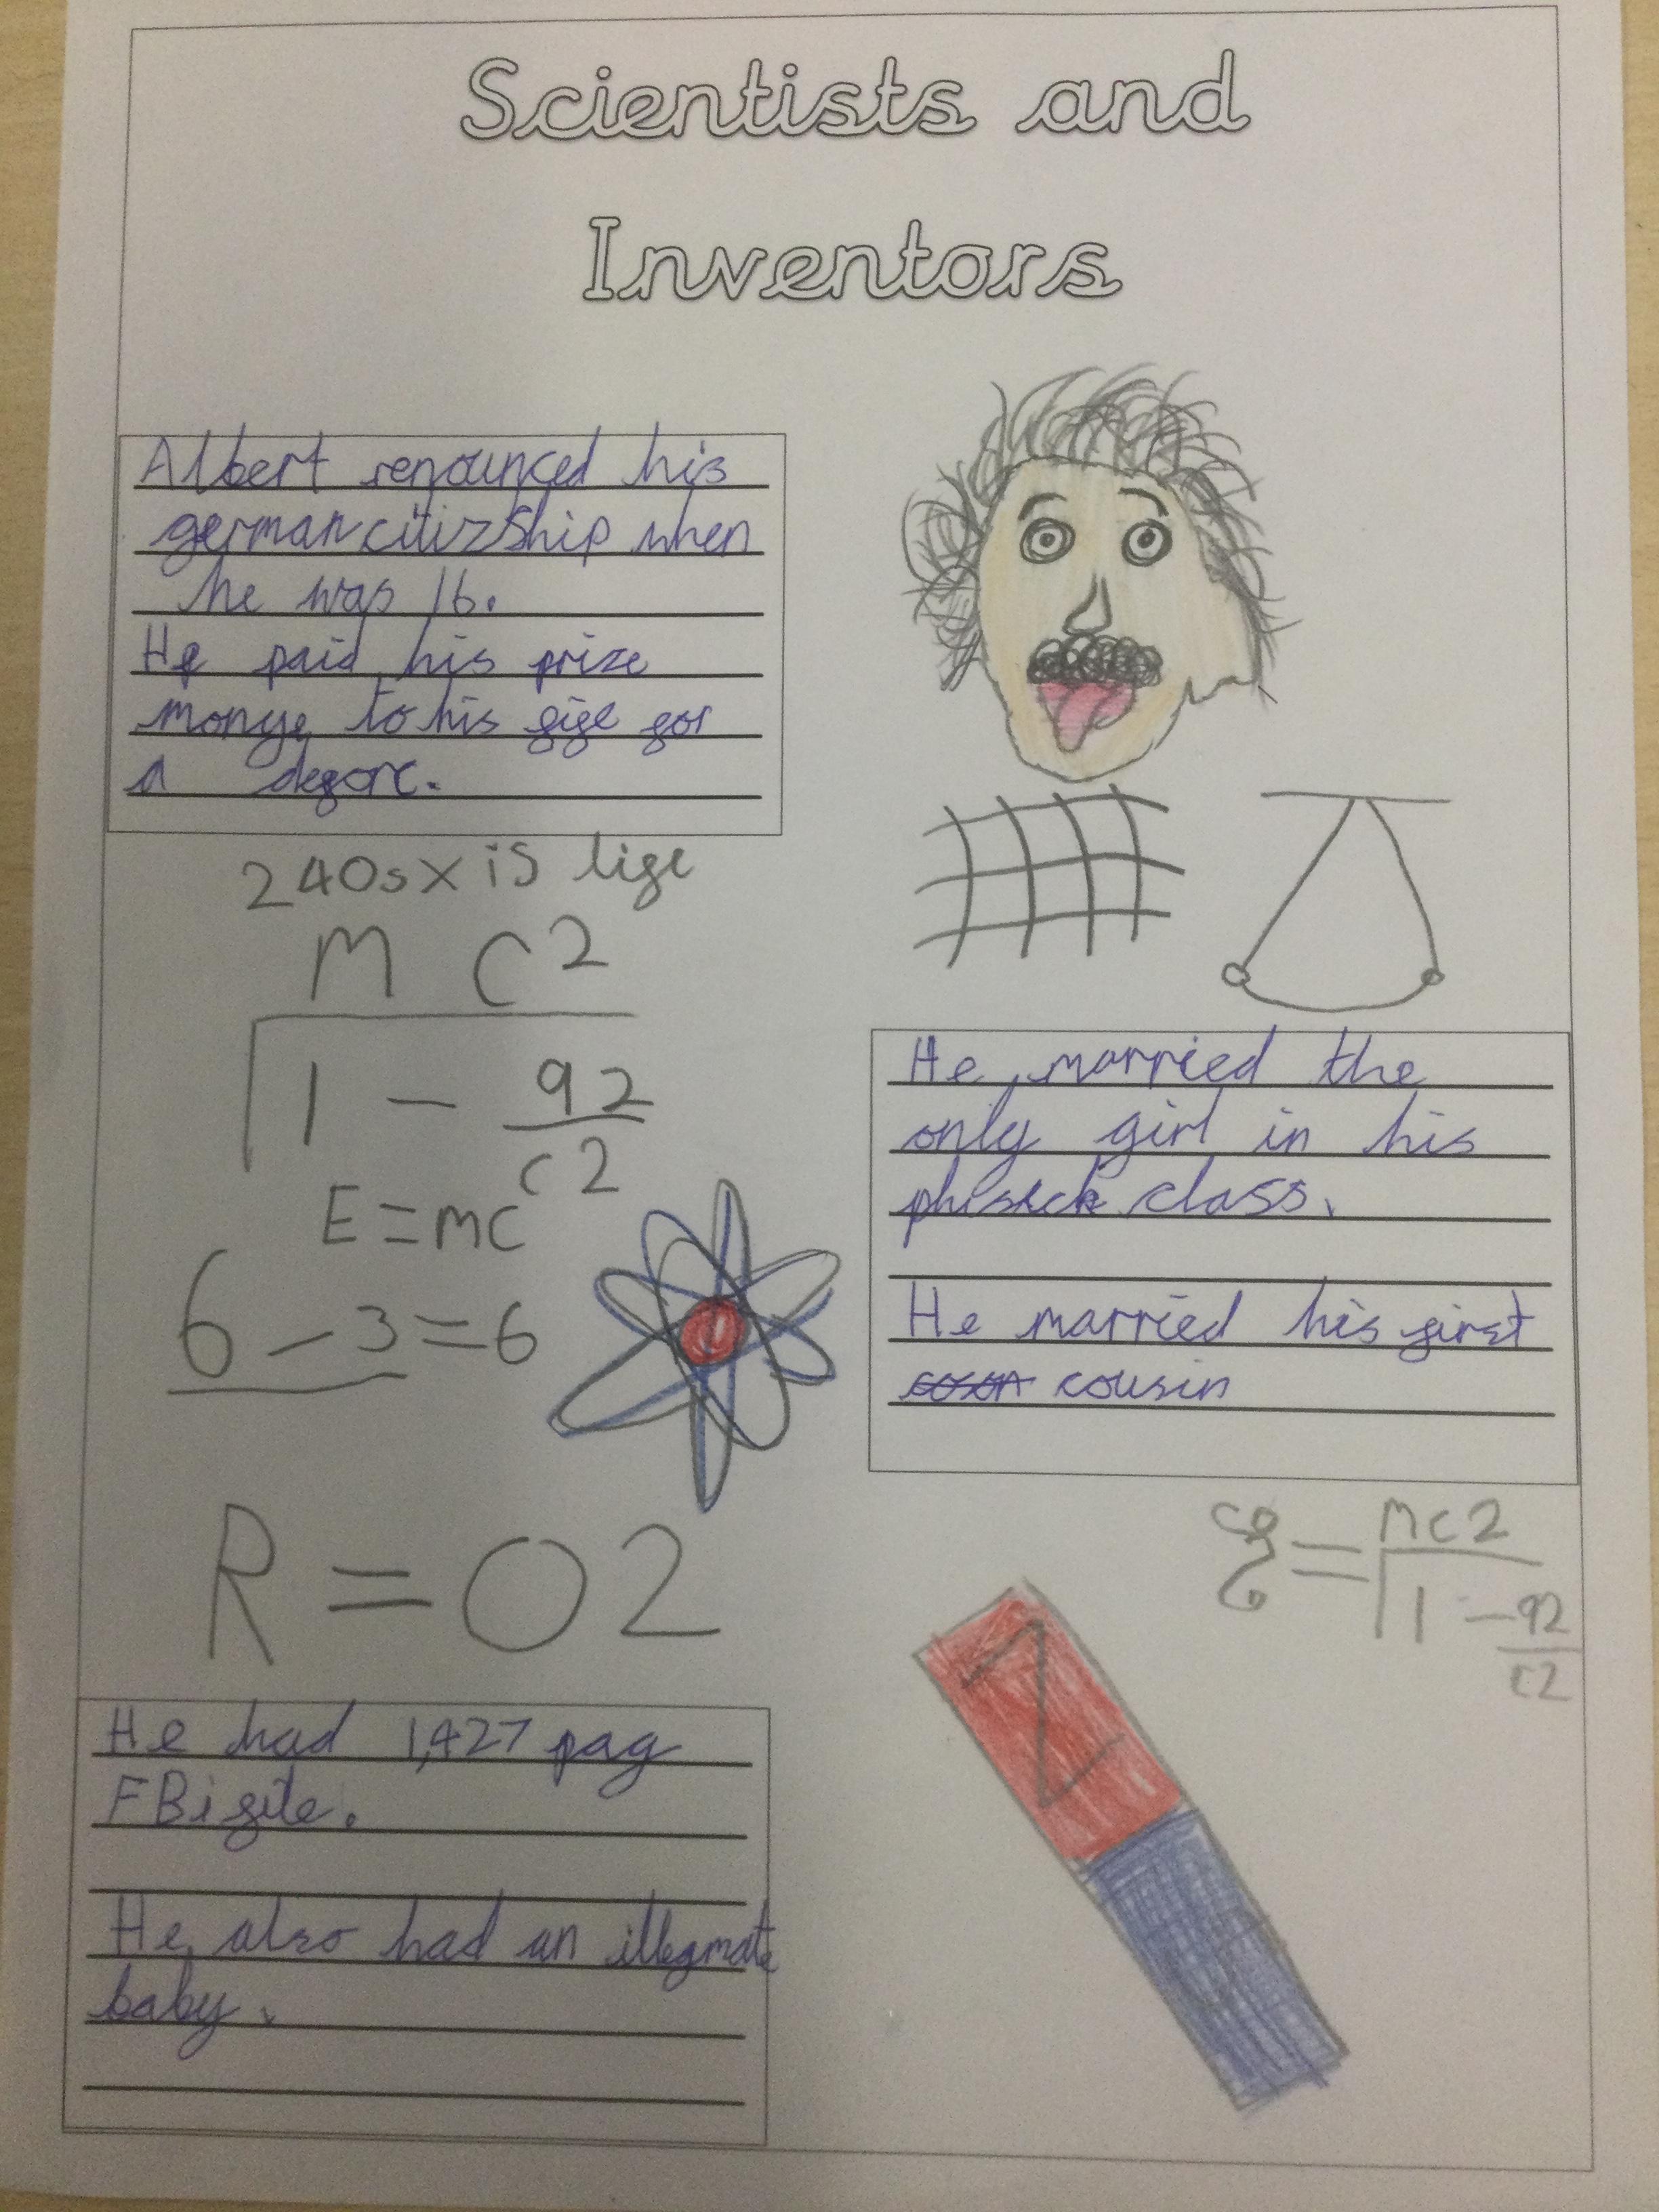 Scientists and
Inventors
Albert renounced his
german citizship when
he was 16.
He paid his prize
monye to his gife for
a deforc.
240sx is life
M C2
1 - 92
c2
E=mc
6-3=6
R=02
He married the
only girl in his
phisick class.
He married his first
cousin
=
mc2
1 - 92
c2
He had 1,427 pag
FBi file.
He also had an illegmate
baby.
N